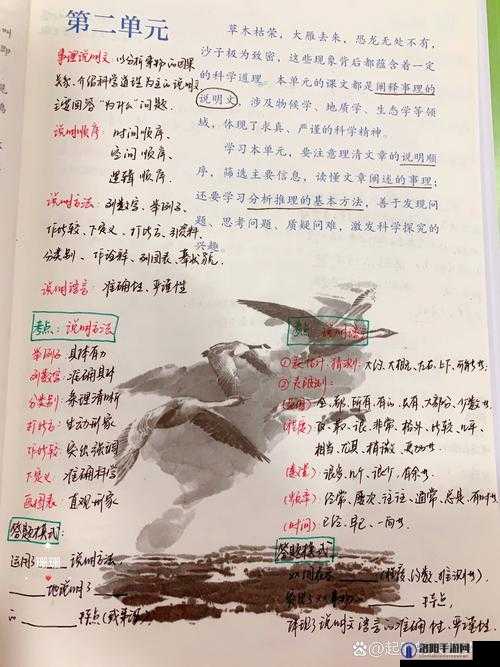 第二单元
草木枯荣，大雁去来，恐龙无处不有，
沙子极为致密，这些现象背后都蕴含着一定
的科学道理。本单元的课文都是阐释事理的
说明文，涉及物候学、地质学、生态学等领
域，体现了求真、严谨的科学精神。
学习本单元，要注意理清文章的说明顺
序，筛选主要信息，读懂文章阐述的事理；
还要学习分析推理的基本方法，善于发现问
题、思考问题、质疑问难，激发科学探究的
兴趣。
事理说明文：以分析事物的因果
关系、介绍科学道理为主的说明文
主要回答“为什么”问题。
说明顺序：时间顺序、
空间顺序、
逻辑顺序
说明方法：列数字、举例子、
作比较、下定义、打比方、引资料、
分类别、作诠释、列图表、摹状貌
说明语言：准确性、严谨性
考点：说明方法
举例子：具体有力
列数字：准确具体
分类别：条理清晰
打比方：生动形象
作比较：突出强调
下定义：准确科学
画图表：直观形象
答题模式：
运用了 说明方法
地说明了
特点
考点：说明语言
①表估计、猜测：大约、大概、左右、上下、
②表限制：
全、都、所有、
很、非常、格外、比较、几乎、
相当、尤其、稍微、更加
很多、几个、很少、
(频率) 经常、屡次、往往、通常、总是、有时
(时间) 已经、早已、一向
答题模式
特点，
体现了说明文语言的准确性、严谨性
珊珊
洛阳手游网